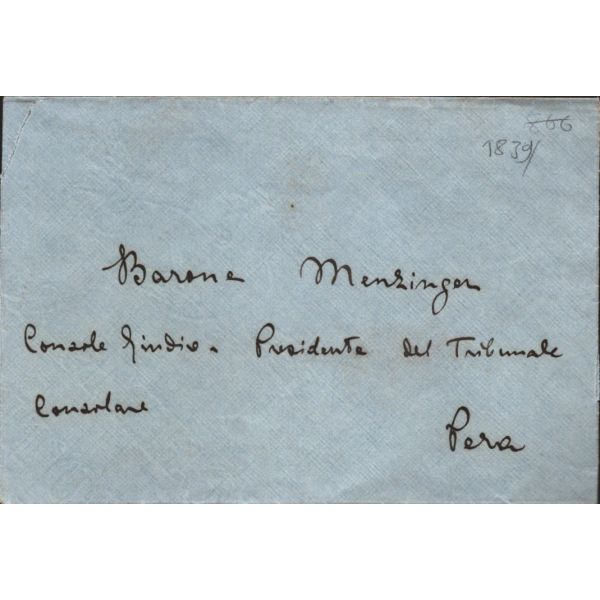 866
1839/
Barone Menzinger
Console Giudice - Presidente del Tribunale
Consolare
Pera